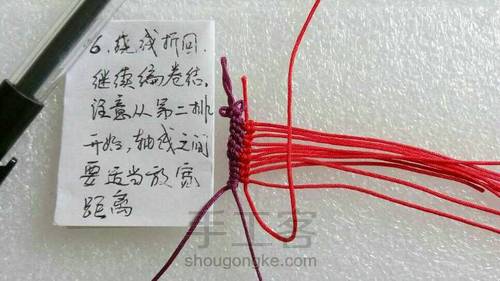 6、绕线折回.
继续编卷结,
注意从第二排
开始,轴线之间
要适当放宽
距离
手工客
shougongke.com